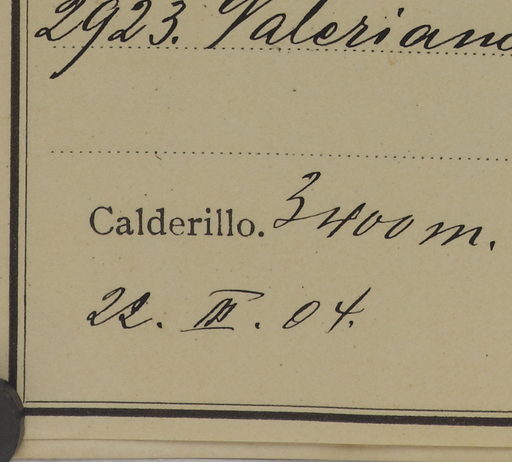 2923. Valeriana
Calderillo. 3400 m.
22. III. 04.